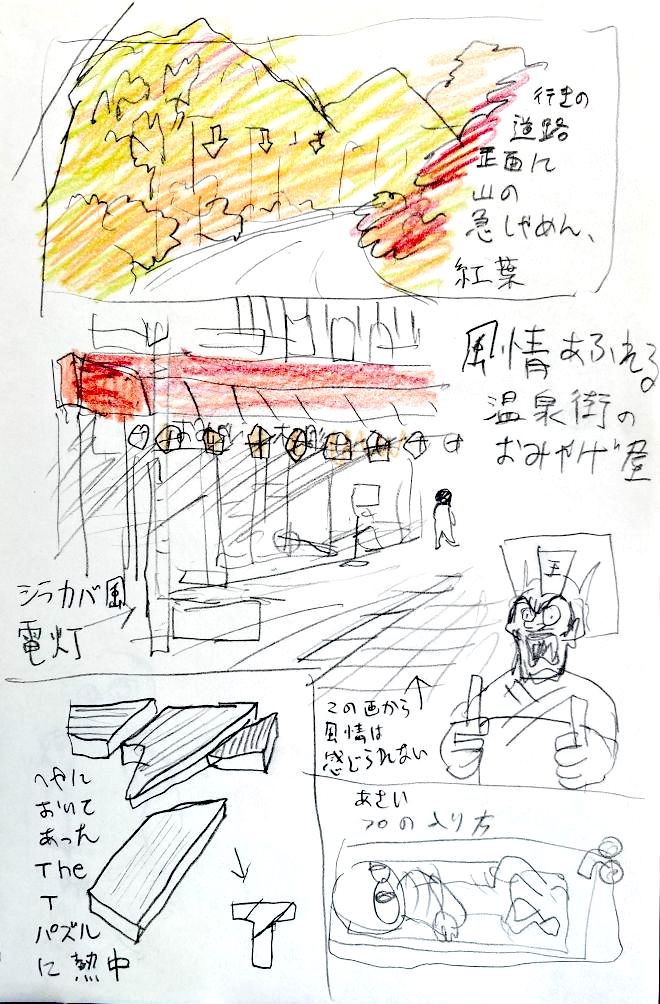 行きの
道路
正面に
山の
急しゃめん、
紅葉
風情あふれる
温泉街の
おみやげ屋
シラカバ風
電灯
王
この画から
風情は
感じられない
へやに
おいて
あった
The
T
パズル
に熱中
あさい
フロの入り方